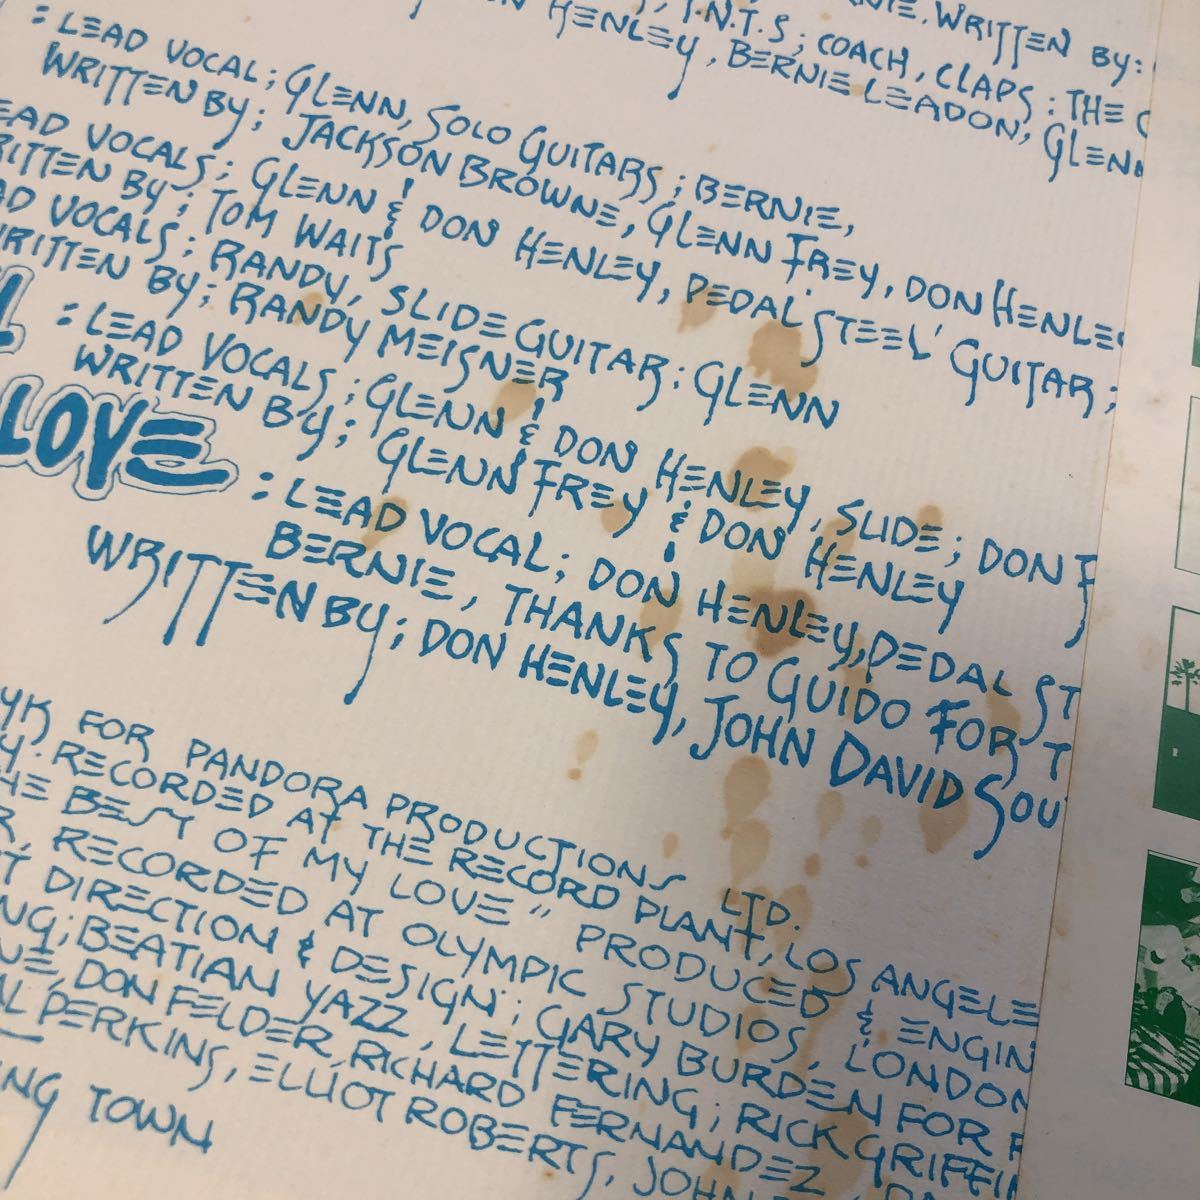 NIE. WRITTEN BY:
, T.N.T.S; COACH, CLAPS: THE
HENLEY, BERNIE LEADON, GLENN
: LEAD VOCAL; GLENN, SOLO GUITARS; BERNIE,
WRITTEN BY; JACKSON BROWNE, GLENN FREY, DON HENLEY
EAD VOCALS; GLENN & DON HENLEY, PEDAL STEEL GUITAR;
RITTEN BY; TOM WAITS
AD VOCALS; RANDY, SLIDE GUITAR: GLENN
WRITTEN BY; RANDY MEISNER
: LEAD VOCALS; GLENN & DON HENLEY, SLIDE; DON F
WRITTEN BY; GLENN FREY & DON HENLEY
LOVE : LEAD VOCAL; DON HENLEY, PEDAL ST
BERNIE, THANKS TO GUIDO FOR T
WRITTEN BY; DON HENLEY, JOHN DAVID SOU
YK FOR PANDORA PRODUCTIONS LTD.
Y. RECORDED AT THE RECORD PLANT, LOS ANGELE
HE BEST OF MY LOVE" PRODUCED & ENGIN
R, RECORDED AT OLYMPIC STUDIOS, LONDON
T DIRECTION & DESIGN; GARY BURDEN FOR R
NG; BEATIAN YAZZ, LETTERING; RICK GRIFFIN
NE, DON FELDER, RICHARD FERNANDEZ,
AL PERKINS, ELLIOT ROBERTS, JOHN
NG TOWN